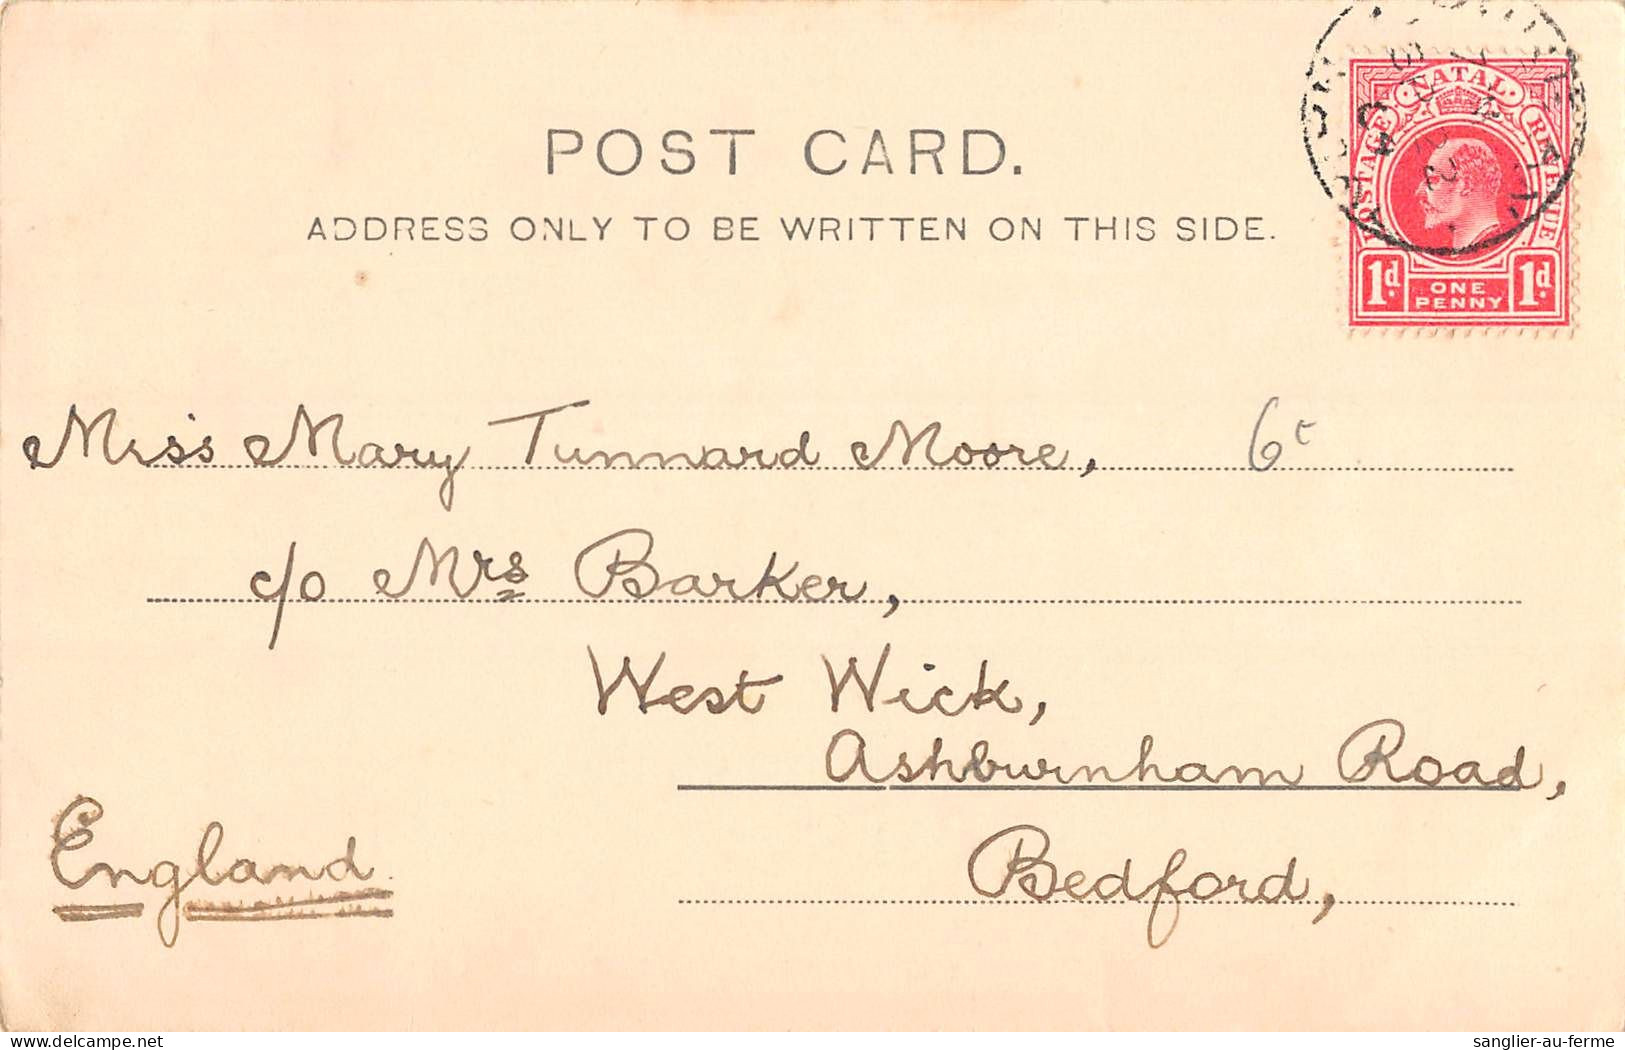 POST CARD.
ADDRESS ONLY TO BE WRITTEN ON THIS SIDE.
POSTAGE NATAL REVENUE
1d. ONE PENNY 1d.
Miss Mary Tunnard Moore, 6€
c/o Mrs Barker,
West Wick,
Ashburnham Road,
England
Bedford,
sanglier-au-ferme